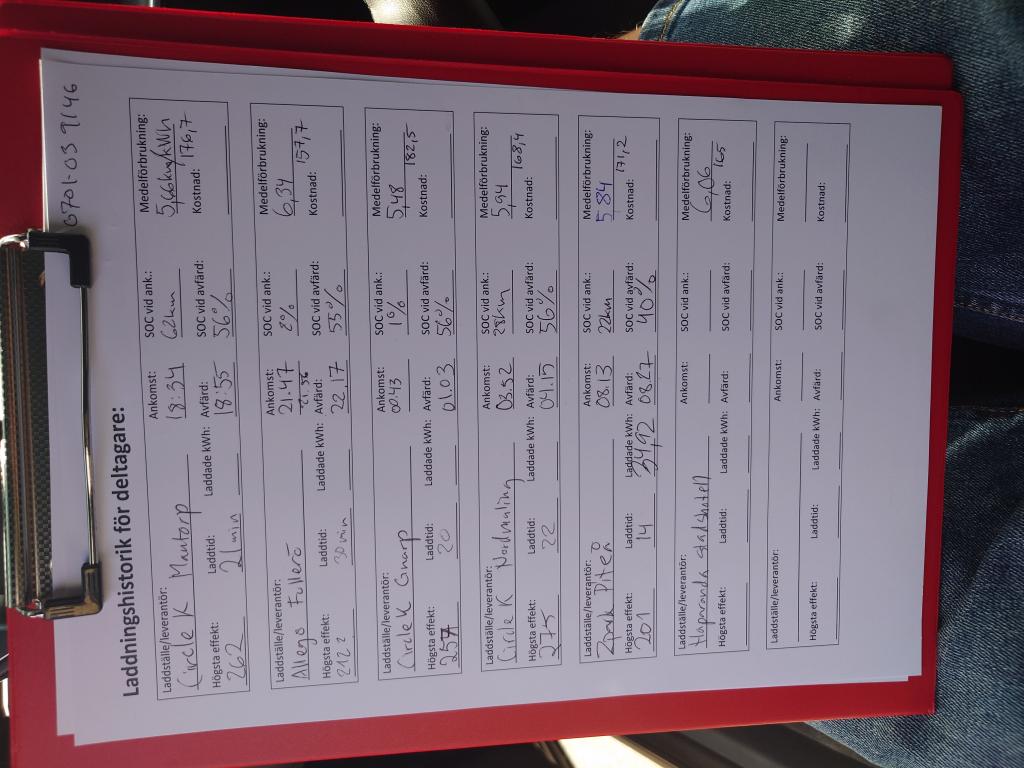 0701-039146
Laddningshistorik för deltagare:
Laddställe/leverantör: Ankomst: SOC vid ank.: Medelförbrukning:
Circle K Mantorp 18:34 62km 5,66km/kWh
Högsta effekt: Laddtid: Laddade kWh: Avfärd: SOC vid avfärd: Kostnad: 176,7
262 21min 18:55 56%
Laddställe/leverantör: Ankomst: SOC vid ank.: Medelförbrukning:
Allego Tullerö 21.47 8% 6,34
Högsta effekt: Laddtid: Laddade kWh: Avfärd: SOC vid avfärd: Kostnad: 157,7
212 30min 22,17 55%
Laddställe/leverantör: Ankomst: SOC vid ank.: Medelförbrukning:
Circle K Gnarp 00.43 1% 5,48
Högsta effekt: Laddtid: Laddade kWh: Avfärd: SOC vid avfärd: Kostnad: 182,5
257 20 01.03 56%
Laddställe/leverantör: Ankomst: SOC vid ank.: Medelförbrukning:
Circle K Nordmaling 03.52 28km 5,94
Högsta effekt: Laddtid: Laddade kWh: Avfärd: SOC vid avfärd: Kostnad: 168,4
275 22 04.15 56%
Laddställe/leverantör: Ankomst: SOC vid ank.: Medelförbrukning:
Piteå 08.13 22km 5,84
Högsta effekt: Laddtid: Laddade kWh: Avfärd: SOC vid avfärd: Kostnad: 171,2
201 14 34,92 08.27 40%
Laddställe/leverantör: Ankomst: SOC vid ank.: Medelförbrukning:
Haparanda stadshotell 6,06
Högsta effekt: Laddtid: Laddade kWh: Avfärd: SOC vid avfärd: Kostnad: 165
Laddställe/leverantör: Ankomst: SOC vid ank.: Medelförbrukning:
Högsta effekt: Laddtid: Laddade kWh: Avfärd: SOC vid avfärd: Kostnad: